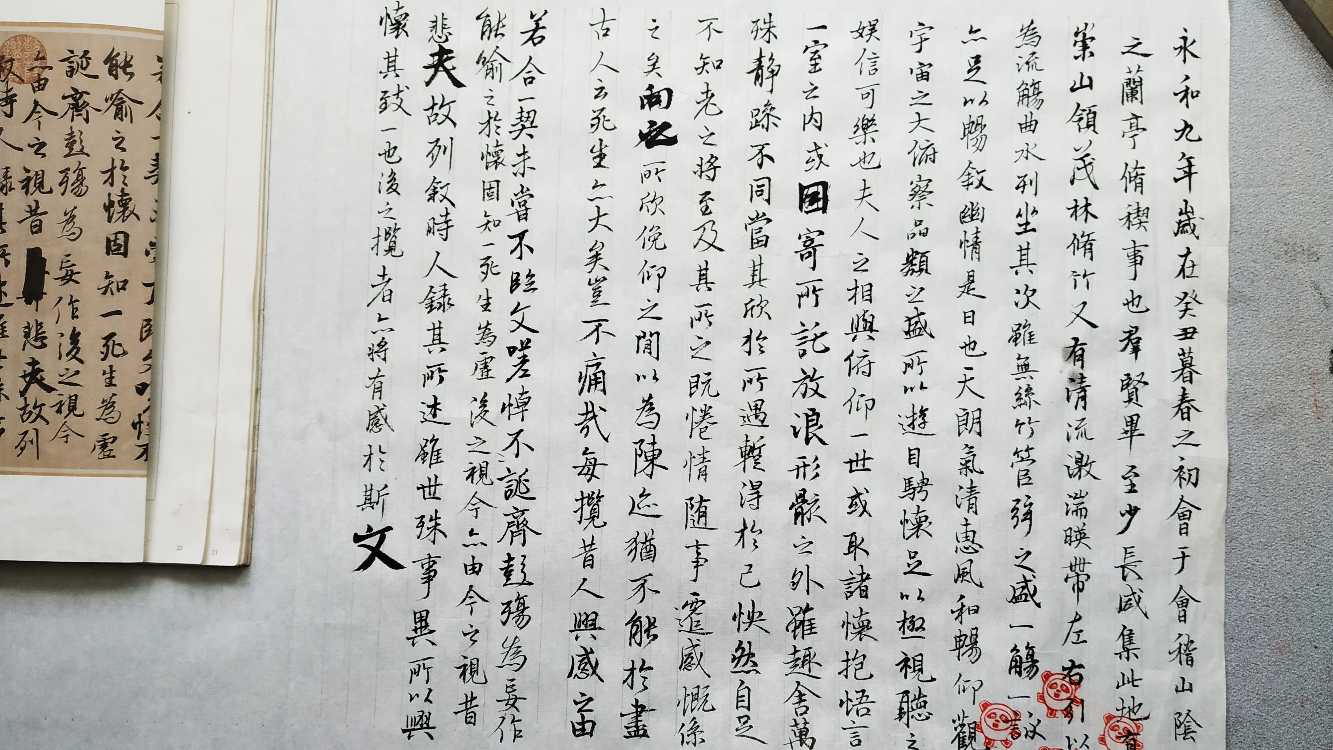 永和九年歲在癸丑暮春之初會于會稽山陰
之蘭亭脩稧事也羣賢畢至少長咸集此地有
崇山領茂林脩竹又有清流激湍暎帶左右引以
為流觴曲水列坐其次雖無絲竹管弦之盛一觴一詠
亦足以暢敘幽情是日也天朗氣清惠風和暢仰觀
宇宙之大俯察品類之盛所以遊目騁懷足以極視聽之
娛信可樂也夫人之相與俯仰一世或取諸懷抱悟言
一室之內或因寄所託放浪形骸之外雖趣舍萬
殊静躁不同當其欣於所遇蹔得於己怏然自足
不知老之將至及其所之既惓情随事遷感慨係
之矣向之所欣俛仰之閒以為陳迹猶不能於盡
古人云死生亦大矣豈不痛哉每攬昔人興感之由
若合一契未嘗不臨文嗟悼不誕齊彭殤為妄作
能喻之於懷固知一死生為虛後之視今亦由今之視昔
悲夫故列敘時人錄其所述雖世殊事異所以興
懷其致一也後之攬者亦將有感於斯文
能喻之於懷固知一死生為虛
誕齊彭殤為妄作後之視今
亦由今之視昔悲夫故列
22
21